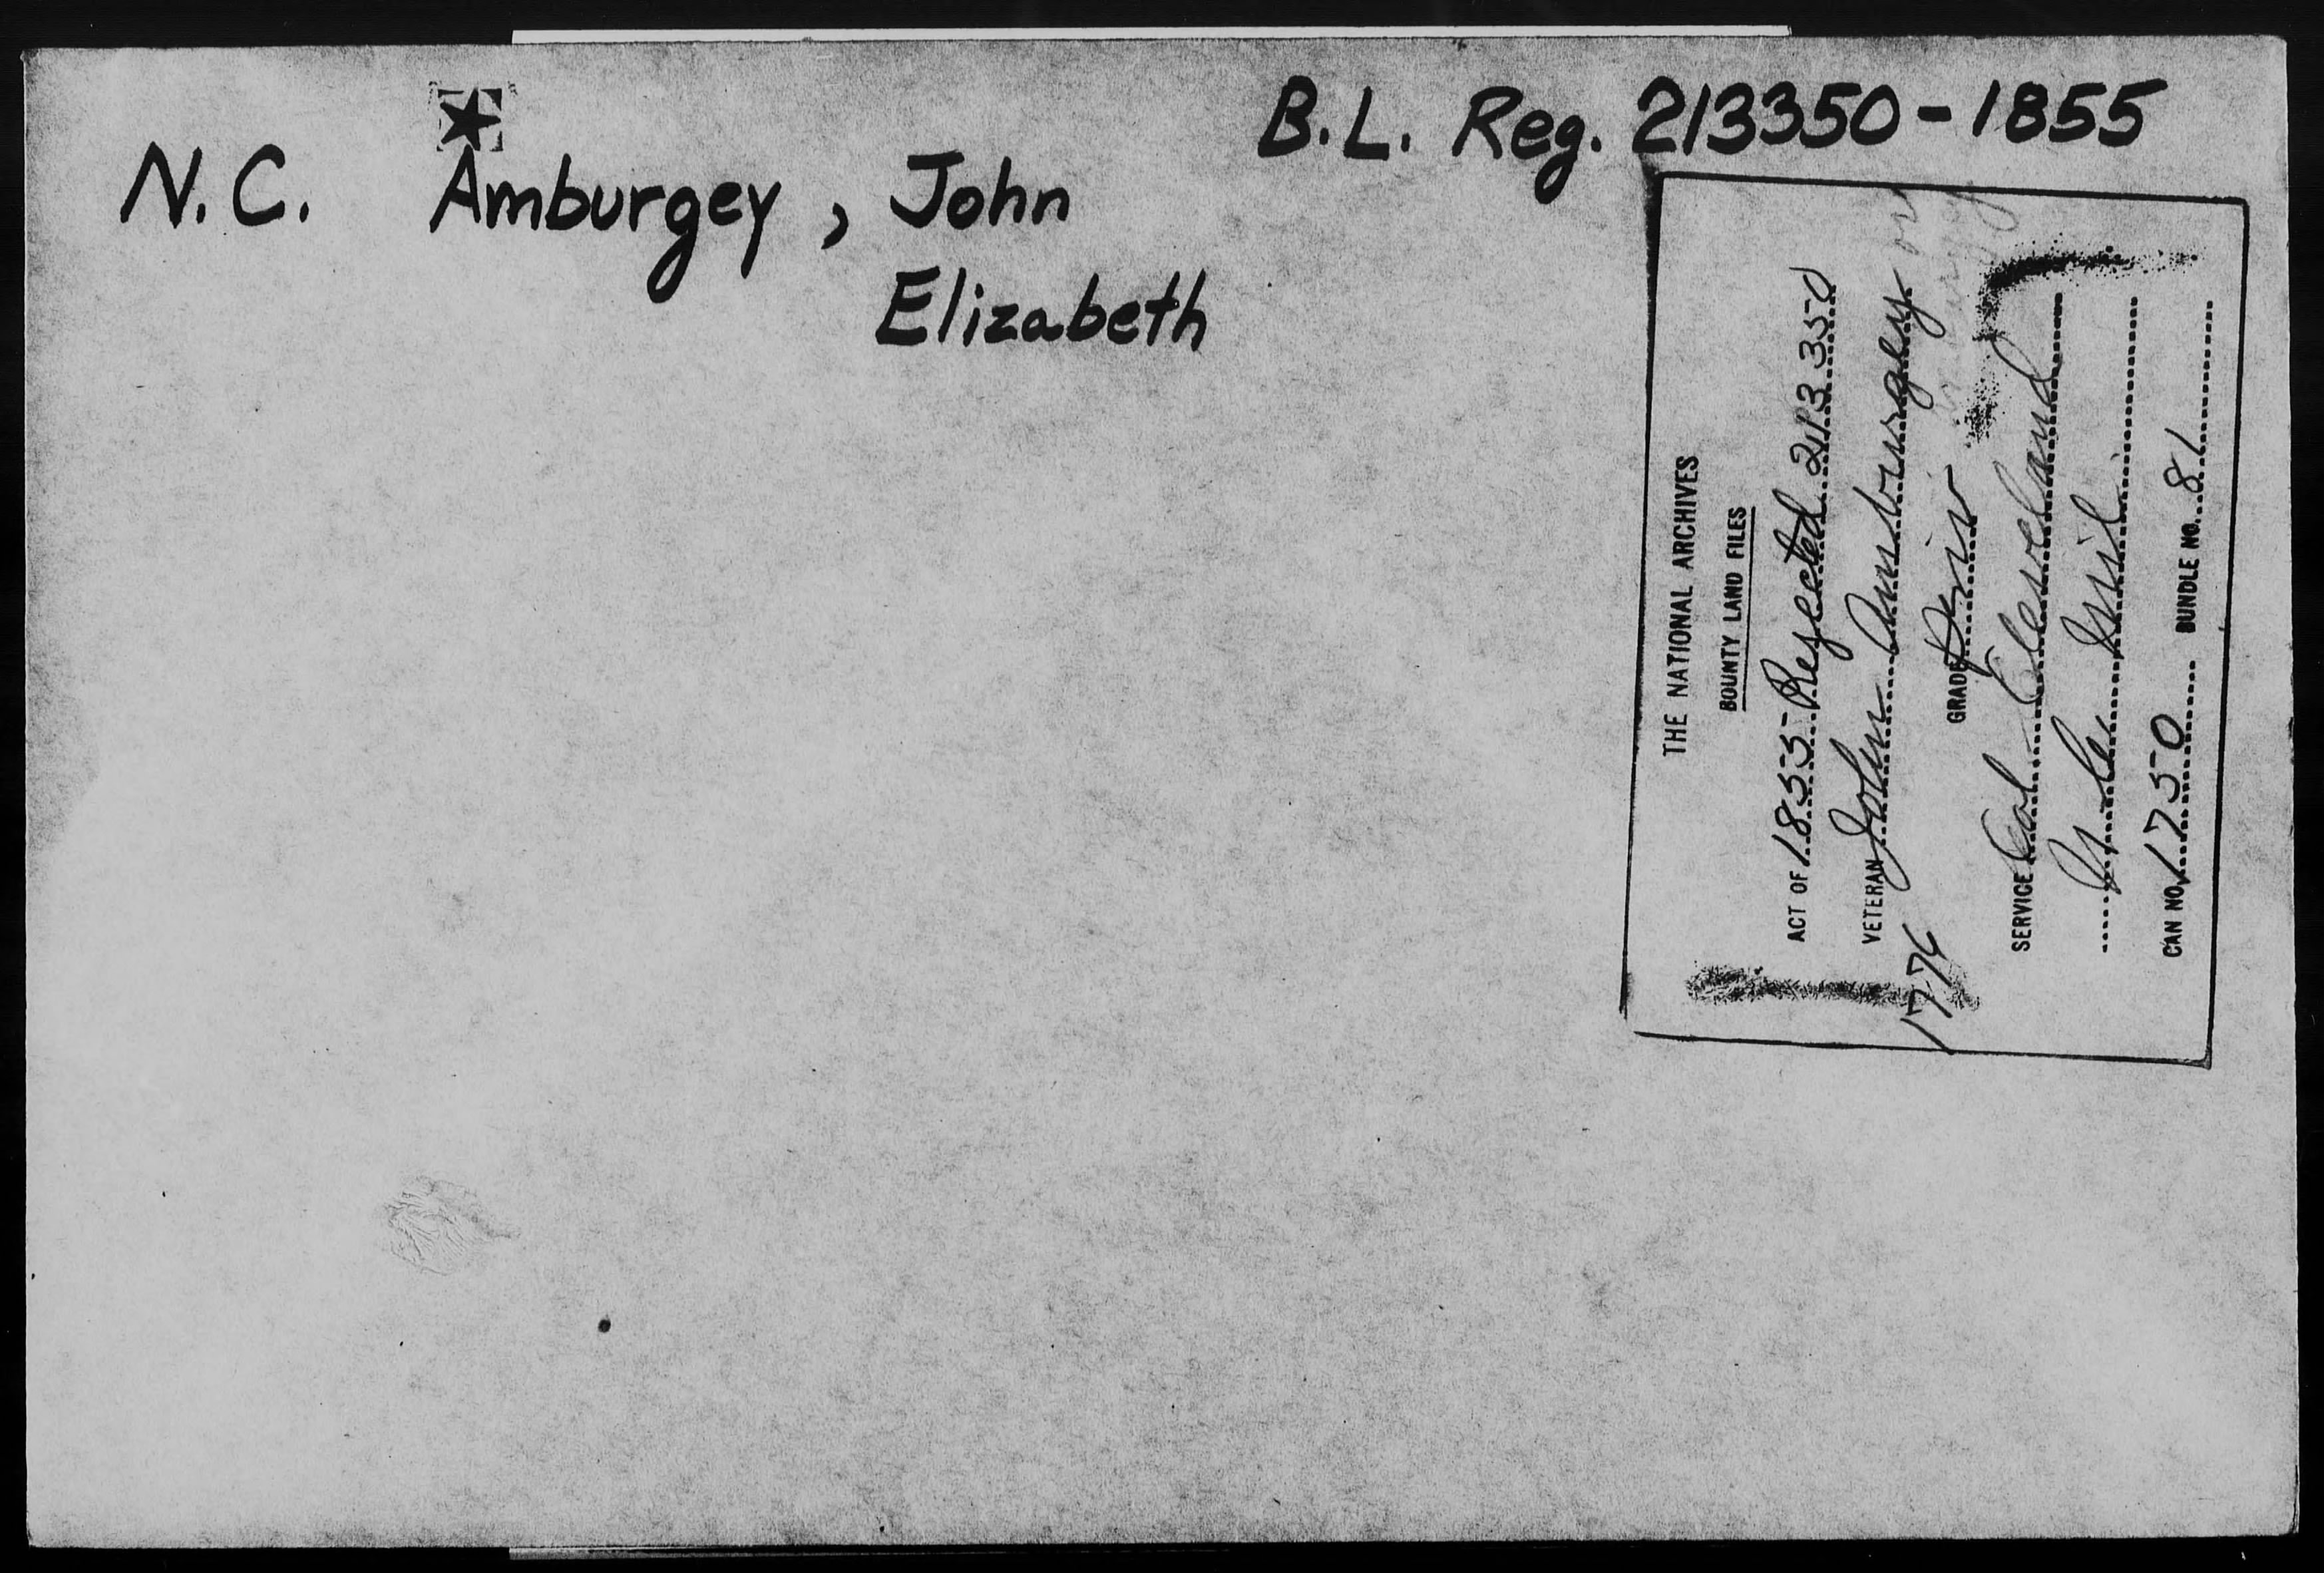 B.L. Reg. 213350-1855
N.C. Amburgey, John
Elizabeth
THE NATIONAL ARCHIVES
BOUNTY LAND FILES
ACT OF 1855 Rejected 213350
VETERAN John Amburgey or
1776 GRADE Priv
SERVICE Col Cleveland
N. C. Mil
CAN NO. 1750 BUNDLE NO. 81